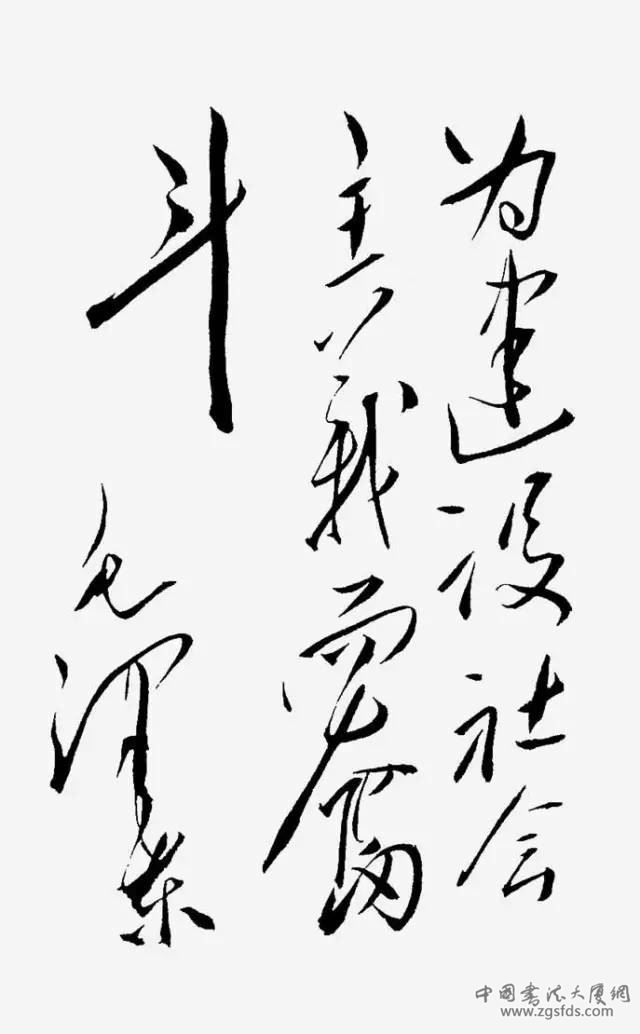 为建设社会
主義而奮
斗
毛泽东
中國書法大廈網
www.zgsfds.com